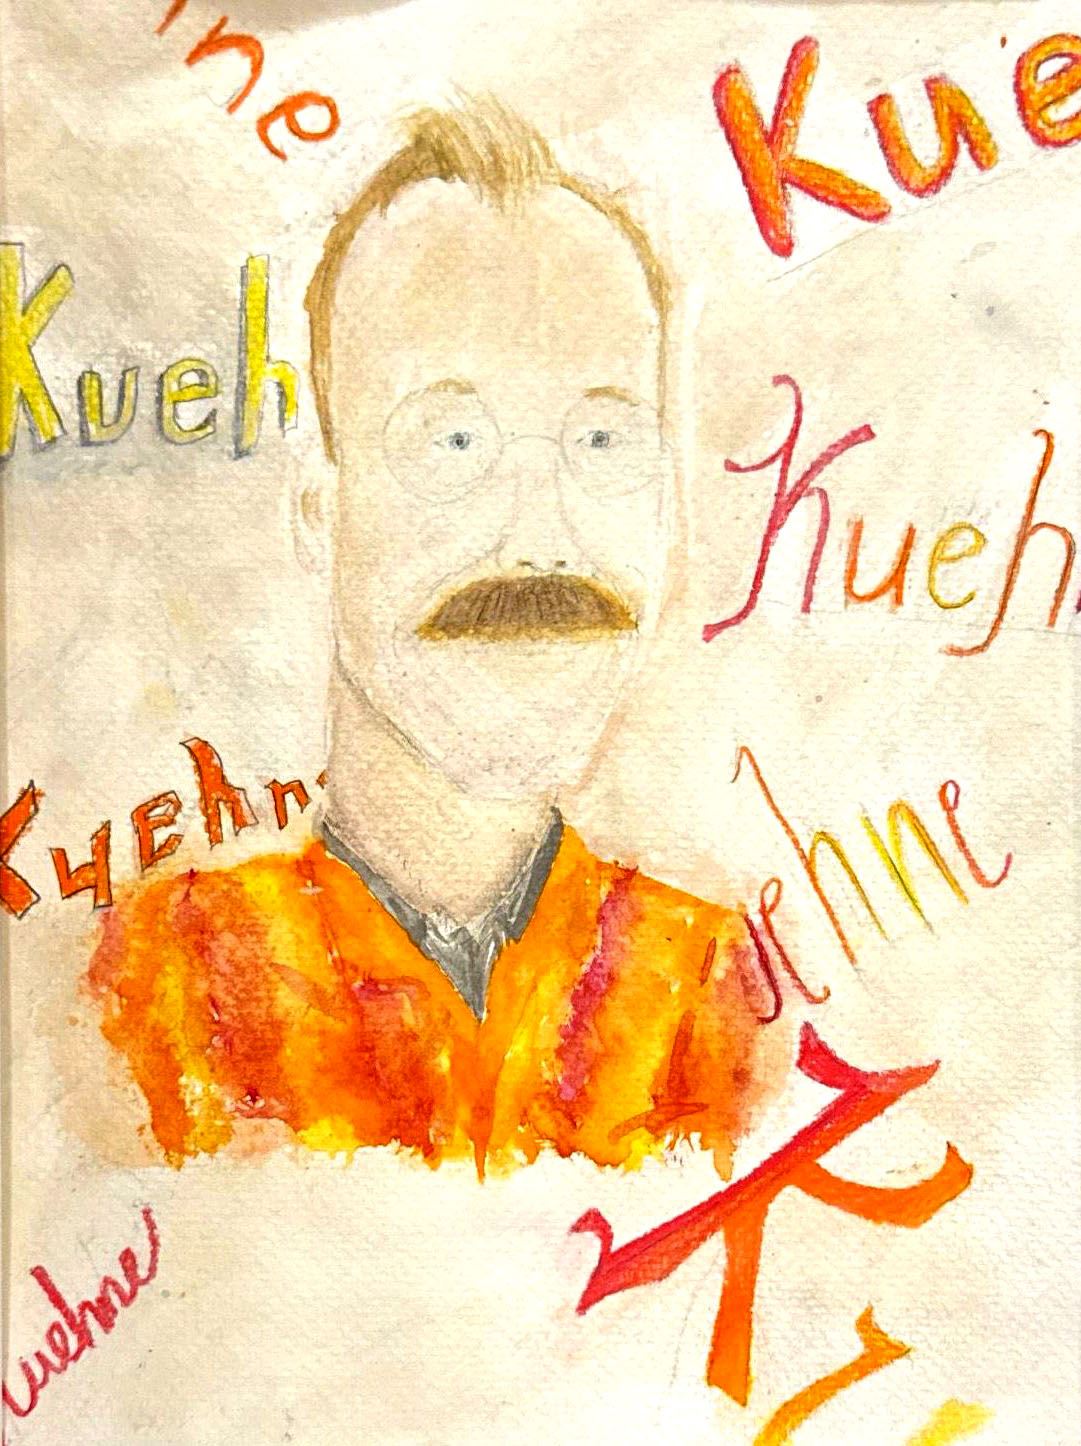 ne
Kue
Kueh
Kueh
Kuehn
ehne
uehne
K